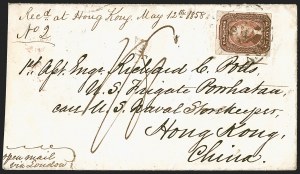 Recd. at Hong Kong May 12th 1858
No 2
1st Asst. Engr. Richard C. Potts,
U. S. Frigate Powhatan,
care U. S. Naval Storekeeper,
Hong Kong,
China.
open mail
via London